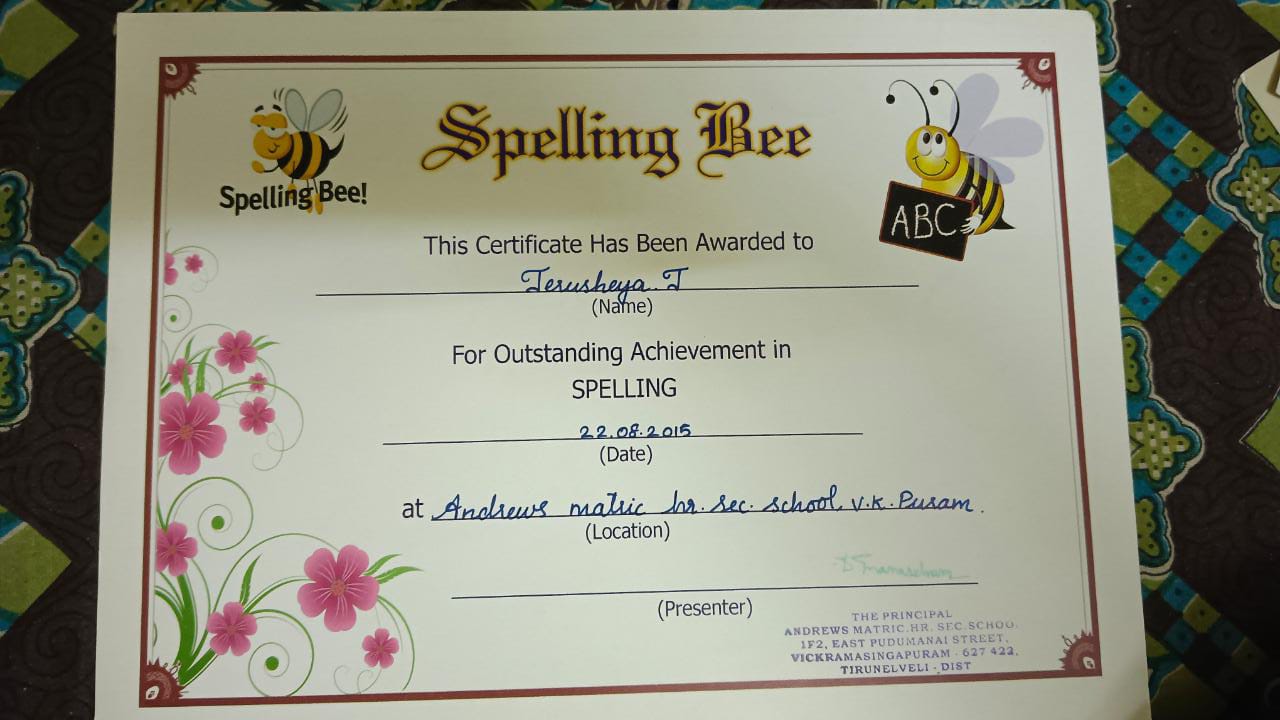 Spelling Bee
Spelling Bee!
ABC
This Certificate Has Been Awarded to
Jerusheya. J
(Name)
For Outstanding Achievement in
SPELLING
22.08.2015
(Date)
at Andrews matric hr. sec. school, V.K. Puram.
(Location)
(Presenter)
THE PRINCIPAL
ANDREWS MATRIC.HR. SEC.SCHOOL
1F2, EAST PUDUMANAI STREET,
VICKRAMASINGAPURAM - 627 422,
TIRUNELVELI - DIST